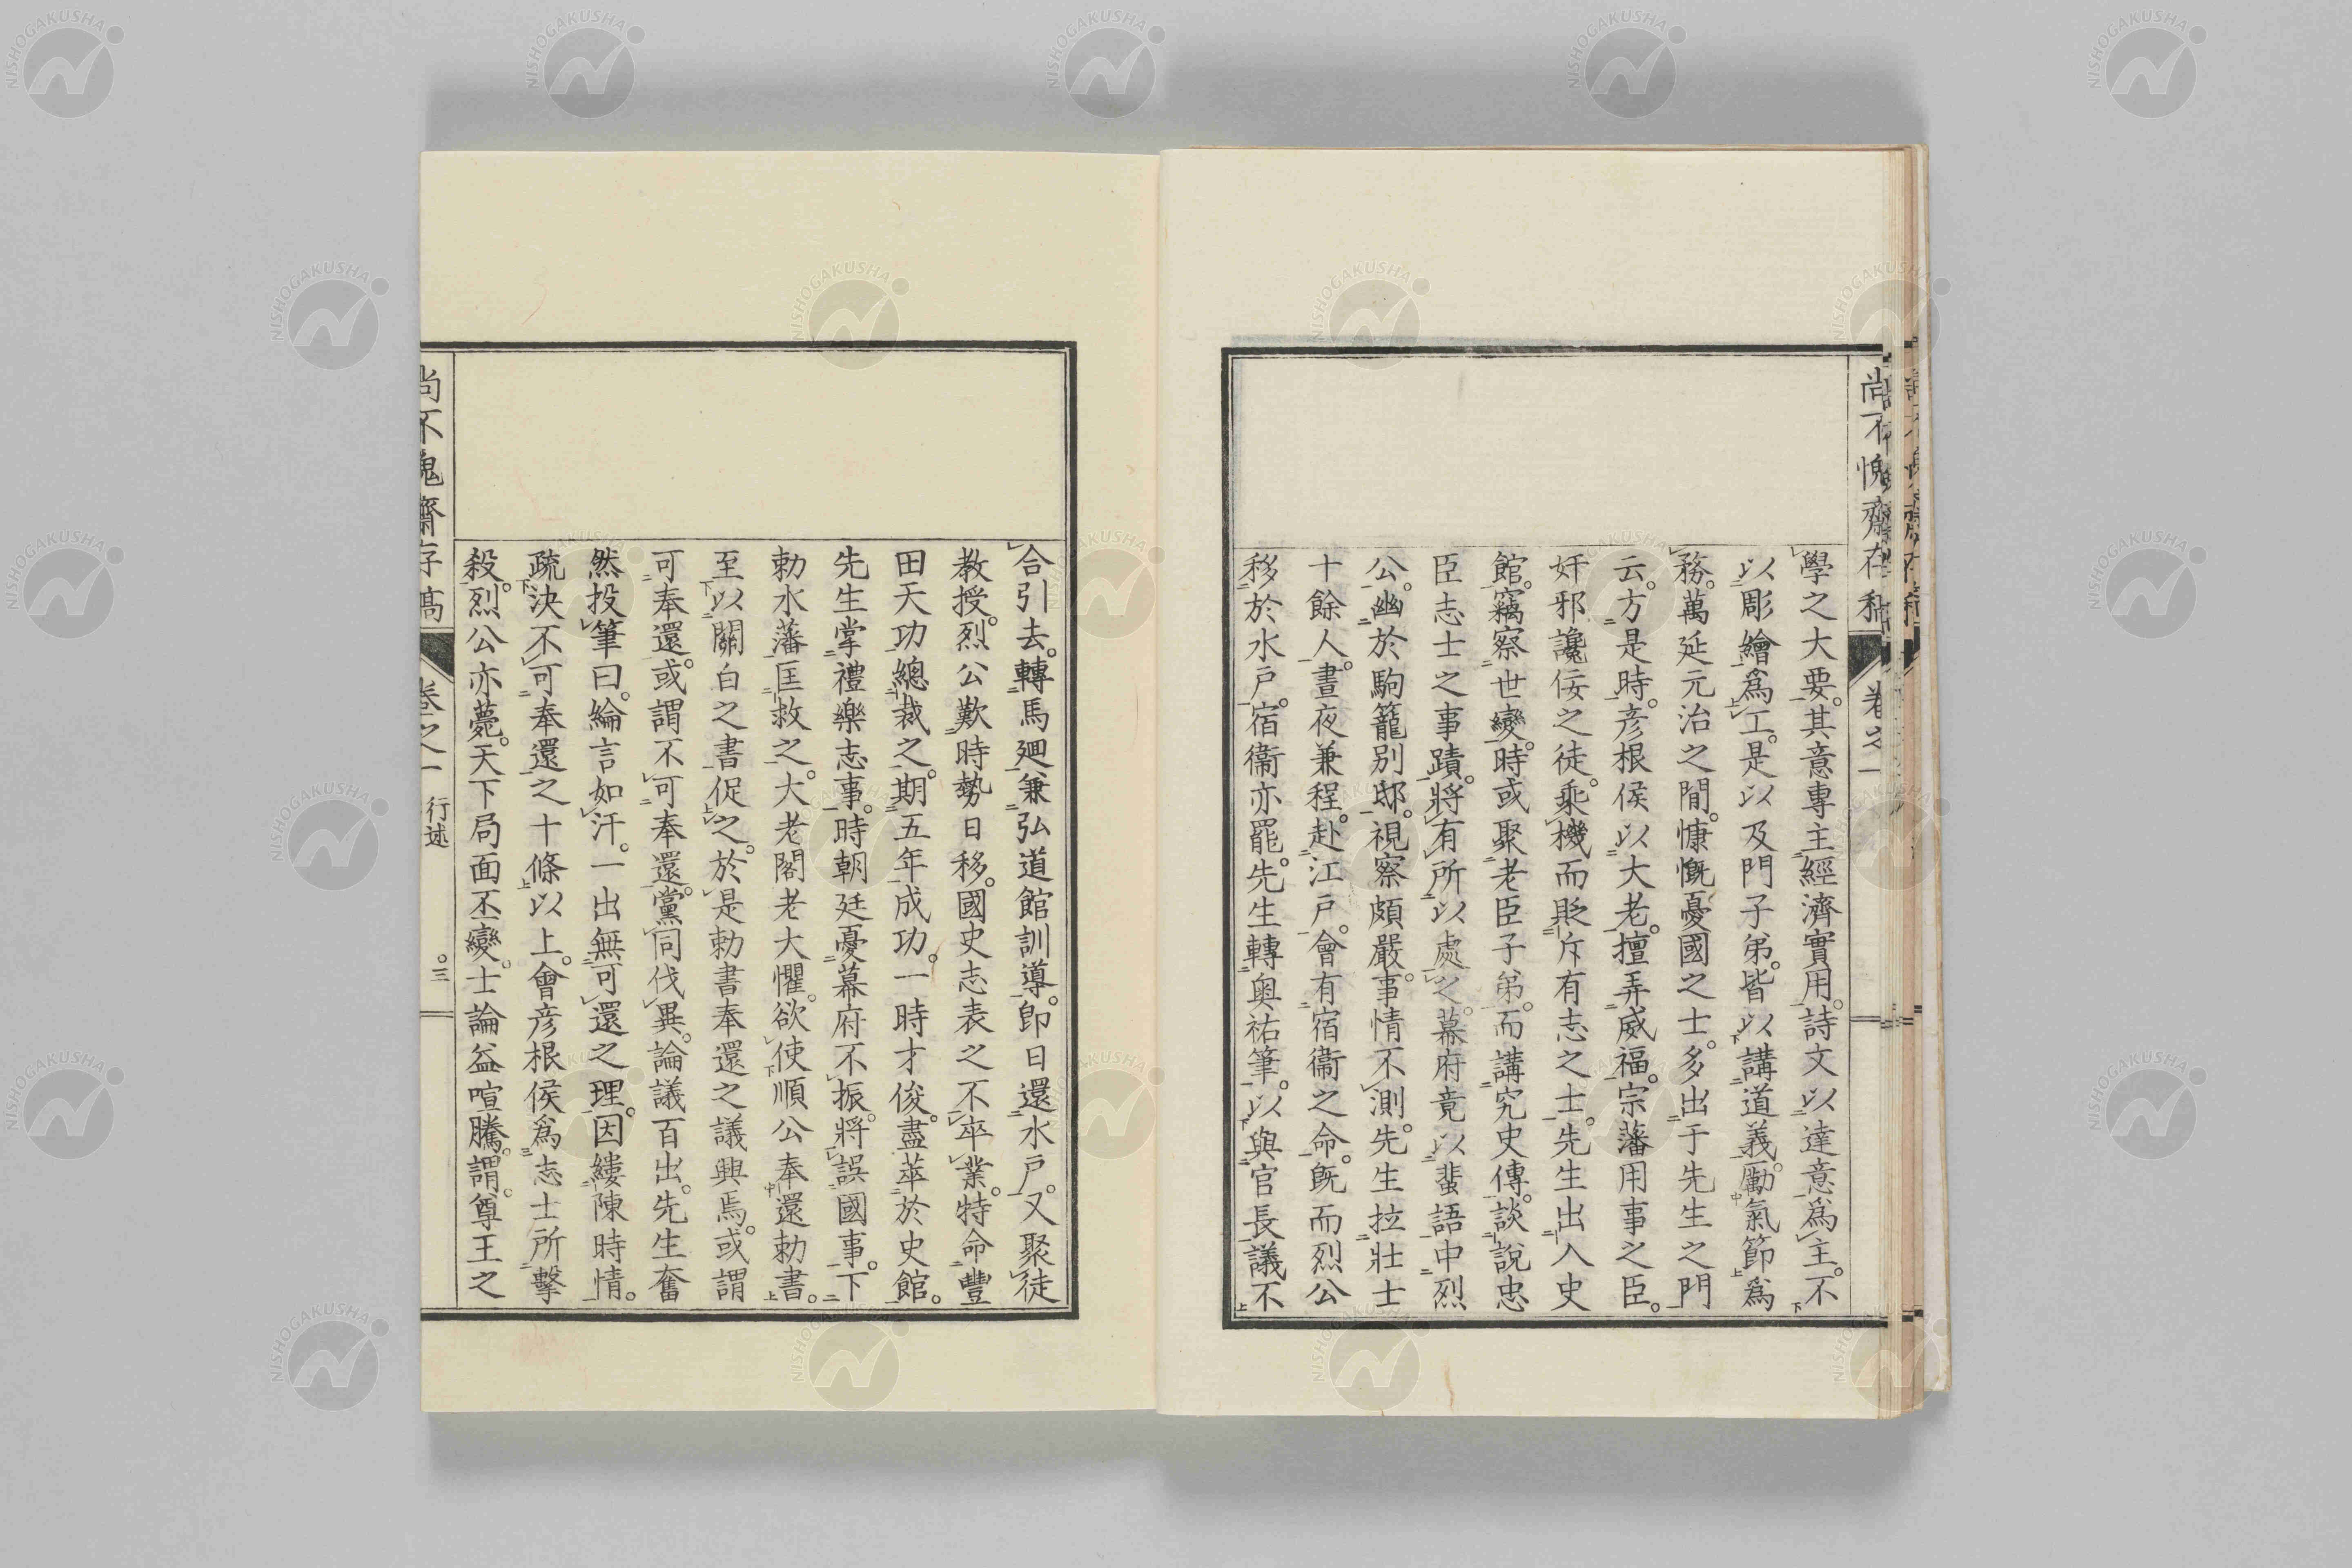 學之大要。其意專主經濟實用。詩文以達意爲主。不
以彫繪爲工。是以及門子弟。皆以講道義勵氣節爲
務。萬延元治之間。慷慨憂國之士。多出于先生之門
云。方是時。彥根侯以大老。擅弄威福。宗藩用事之臣。
奸邪讒佞之徒。乘機而貶斥有志之士。先生出入史
館。竊察世變。時或聚老臣子弟。而講究史傳。談說忠
臣志士之事蹟。將有所以處之。幕府竟以蜚語中烈
公。幽於駒籠別邸。視察頗嚴。事情不測。先生拉壯士
十餘人。晝夜兼程。赴江戶。會有宿衞之命。既而烈公
移於水戶。宿衞亦罷。先生轉奧祐筆。以與官長議不
合引去。轉馬廻。兼弘道館訓導。卽日還水戶。又聚徒
教授。烈公歎時勢日移。國史志表之不卒業。特命豐
田天功總裁之。期五年成功。一時才俊。盡萃於史館。
先生掌禮樂志事。時朝廷憂幕府不振。將誤國事。下
勅水藩匡救之。大老閣老大懼。欲使順公奉還勅書。
至以關白之書促之。於是勅書奉還之議興焉。或謂
可奉還。或謂不可奉還。黨同伐異。論議百出。先生奮
然投筆曰。綸言如汗。一出無可還之理。因縷陳時情。
疏決不可奉還之十條以上。會彥根侯爲志士所擊
殺。烈公亦薨。天下局面丕變。士論益喧騰。謂。尊王之
尚不愧齋存稿 卷之一 行述 三
尚不愧齋存稿 卷之一
NISHOGAKUSHA